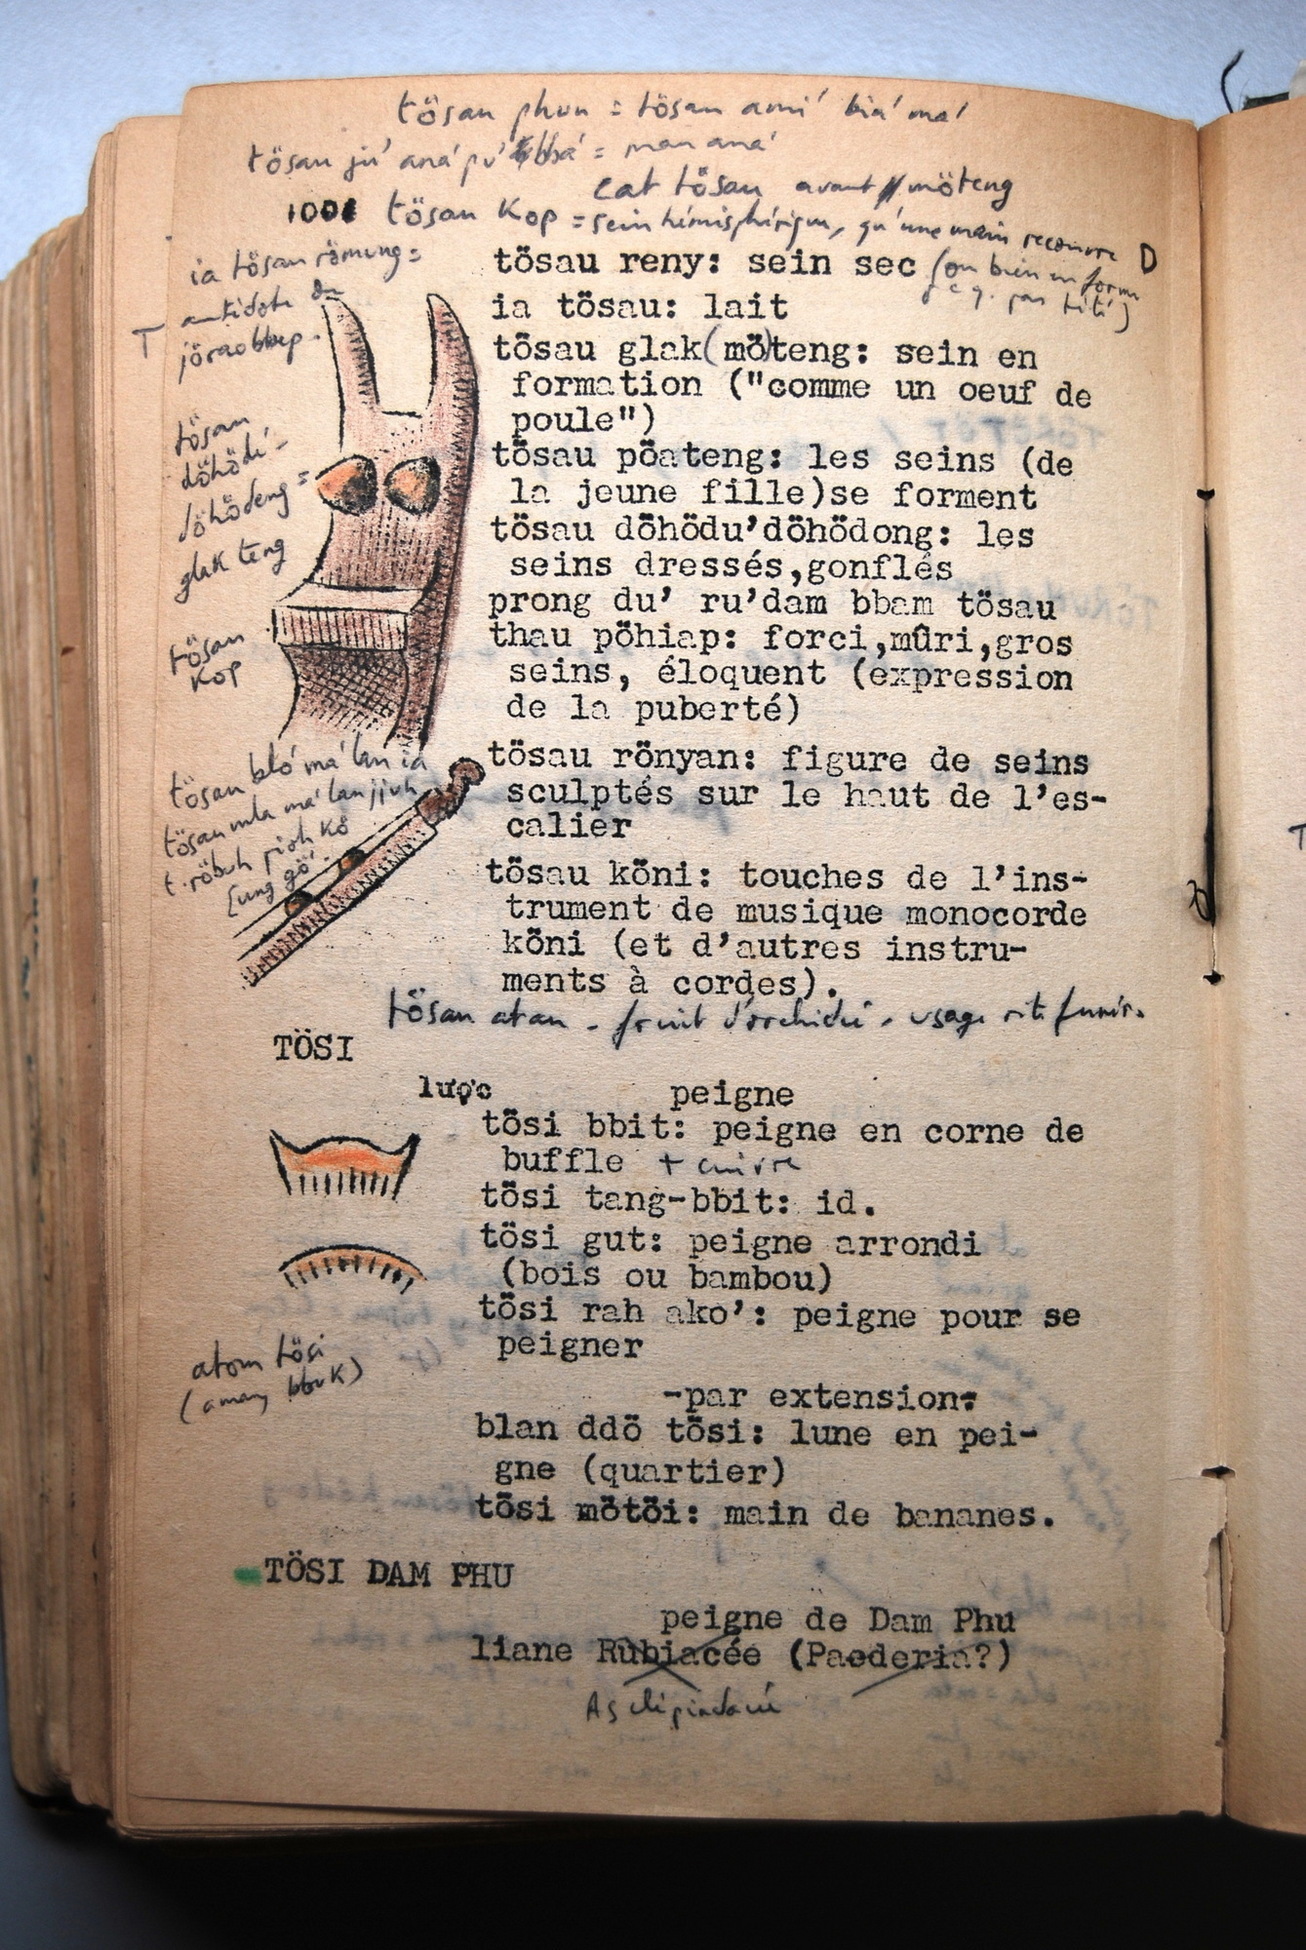 tösau phun = tösau ami' bia' ma'
tösau ju' ana' pu' = man ana'
cat tösau avant möteng
1001 tösau kop = sein hémisphérique, qu'une main recouvre D
ia tösau römung =
tösau reny: sein sec (ou bien en forme
antidote du
ia tösau: lait
T
tösau glak(mö)teng: sein en
formation ("comme un oeuf de
poule")
tösau
döhödi'-
döhödeng =
glak teng
tösau pöateng: les seins (de
la jeune fille)se forment
tösau döhödu'döhödong: les
seins dressés,gonflés
prong du' ru'dam bbam tösau
thau pöhiap: forci,mûri,gros
seins, éloquent (expression
de la puberté)
tösau
kop
tösau blo' ma' lan ia
tösau mla ma' lan jivh
t. röbuh pioh kö
tösau rönyan: figure de seins
sculptés sur le haut de l'es-
calier
tösau köni: touches de l'ins-
trument de musique monocorde
köni (et d'autres instru-
ments à cordes).
tösau atau - fruit d'orchidée, usage rite funér.
TÖSI
lược peigne
tösi bbit: peigne en corne de
buffle + cuivre
tösi tang-bbit: id.
tösi gut: peigne arrondi
(bois ou bambou)
tösi rah ako': peigne pour se
peigner
atom tösi
(amang bbuk)
-par extension:
blan ddö tösi: lune en pei-
gne (quartier)
tösi mötöi: main de bananes.
TÖSI DAM PHU
peigne de Dam Phu
liane Rubiacée (Paederia?)
Asclépiadacée